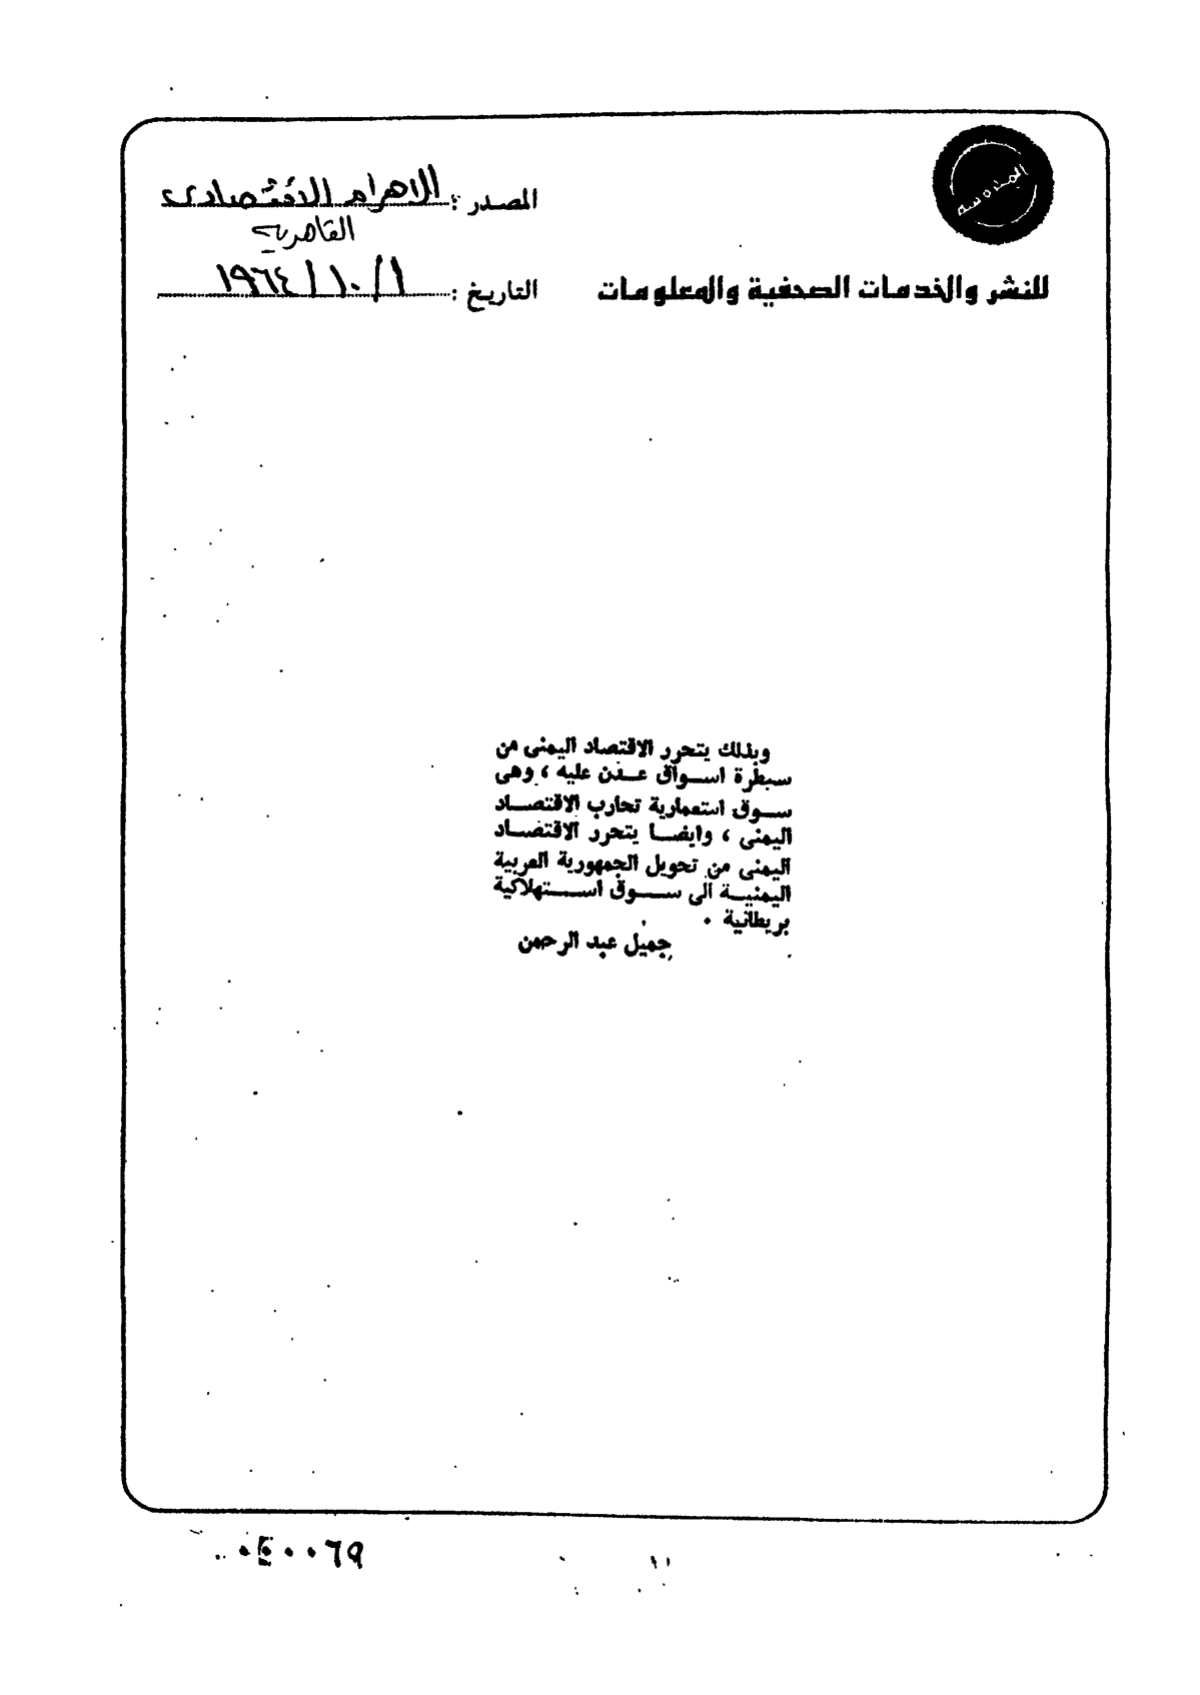 المصدر : الاهرام الاقتصادى
القاهرية
للنشر والخدمات الصحفية والمعلومات
التاريخ : ١ / ١٠ / ١٩٦٤
وبذلك يتحرر الاقتصاد اليمنى من
سيطرة اسواق عدن عليه ، وهى
سوق استعمارية تحارب الاقتصاد
اليمنى ، وايضا يتحرر الاقتصاد
اليمنى من تحويل الجمهورية العربية
اليمنية الى سوق استهلاكية
بريطانية .
جميل عبد الرحمن